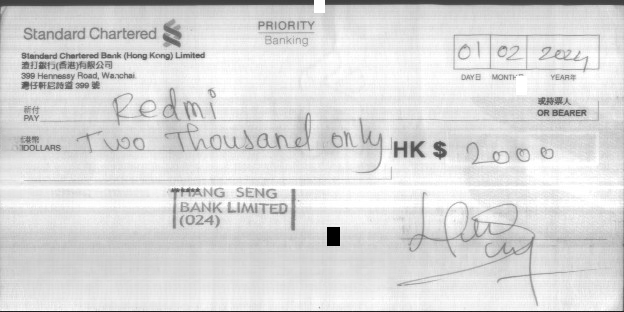 Standard Chartered
PRIORITY
Banking
Standard Chartered Bank (Hong Kong) Limited
渣打銀行(香港)有限公司
399 Hennessy Road, Wanchai
灣仔軒尼詩道 399 號
01 02 2024
DAY日 MONTH YEAR年
祈付
PAY Redmi
或持票人
OR BEARER
港幣
DOLLARS Two Thousand only HK $ 2000
HANG SENG
BANK LIMITED
(024)